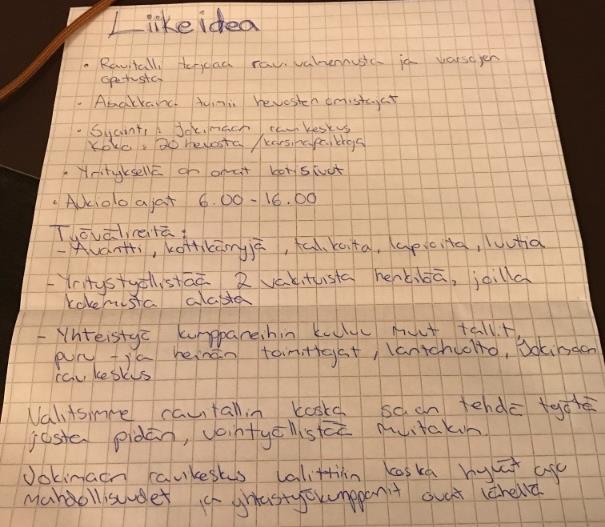 Liikeidea
• Ravitalli tarjoaa ravivalmennusta ja varsojen
opetusta
• Asiakkaina toimii hevosten omistajat
• Sijainti: Jokimaan ravikeskus
Koko: 20 hevosta / karsinapaikkoja
• Yrityksellä on omat kotisivut
• Aukiolo ajat 6.00-16.00
Työvälineitä:
- Avantti, kottikärryjä, talikoita, lapioita, luutia
- Yritys työllistää 2 vakituista henkilöä, joilla
kokemusta alalta
- Yhteistyö kumppaneihin kuuluu muut tallit,
puru- ja heinän toimittajat, lantahuolto, Jokimaan
ravikeskus
Valitsimme ravitallin koska saan tehdä työtä
josta pidän, voin työllistää muitakin.
Jokimaan ravikeskus valittiin koska hyvät ajo
mahdollisuudet ja yhteistyökumppanit ovat lähellä